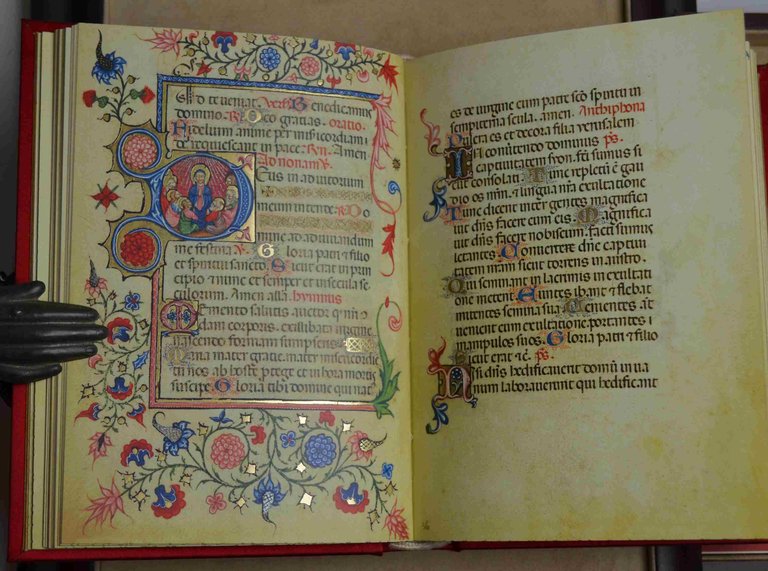 do te veniat. Vers. Benedicamus
domino. R. Deo gratias. oratio.
Fidelium anime per misericordiam
dei requiescant in pace. Amen
Ad nonam. V.
Deus in adiutorium
meum intende. R. Do
mine ad adiuvandum
me festina. V. Gloria patri et filio
et spiritui sancto. Sicut erat in prin
cipio et nunc et semper et in secula se
culorum. Amen alla. hymnus
Memento salutis auctor qd nri
dam corporis. ex illibata virgine
nascendo formam sumpseris.
Maria mater gratie. mater misericordie
tu nos ab hoste protege et in hora mortis
suscipe. Gloria tibi domine qui nat
es de virgine cum patre sco spiritu in
sempiterna secula. amen. Antiphona
Pulcra es et decora filia ierusalem
In convertendo dominus ps.
captivitatem syon. facti sumus si
cut consolati. Tunc repletum e gau
dio os nrm. et lingua nra exultatione
Tunc dicent inter gentes magnifica
vit dns facere cum eis. Magnifica
vit dns facere nobiscum. facti sumus
letantes. Convertere dne captivi
tatem nram sicut torrens in austro.
Qui seminant in lacrimis in exultati
one metent. Euntes ibant et flebat
mittentes semina sua. Venientes at
venient cum exultatione. portantes
manipulos suos. Gloria patri et filio
Sicut erat etc. ps.
Nisi dns hedificaverit domum in va
num laboraverunt qui hedificant